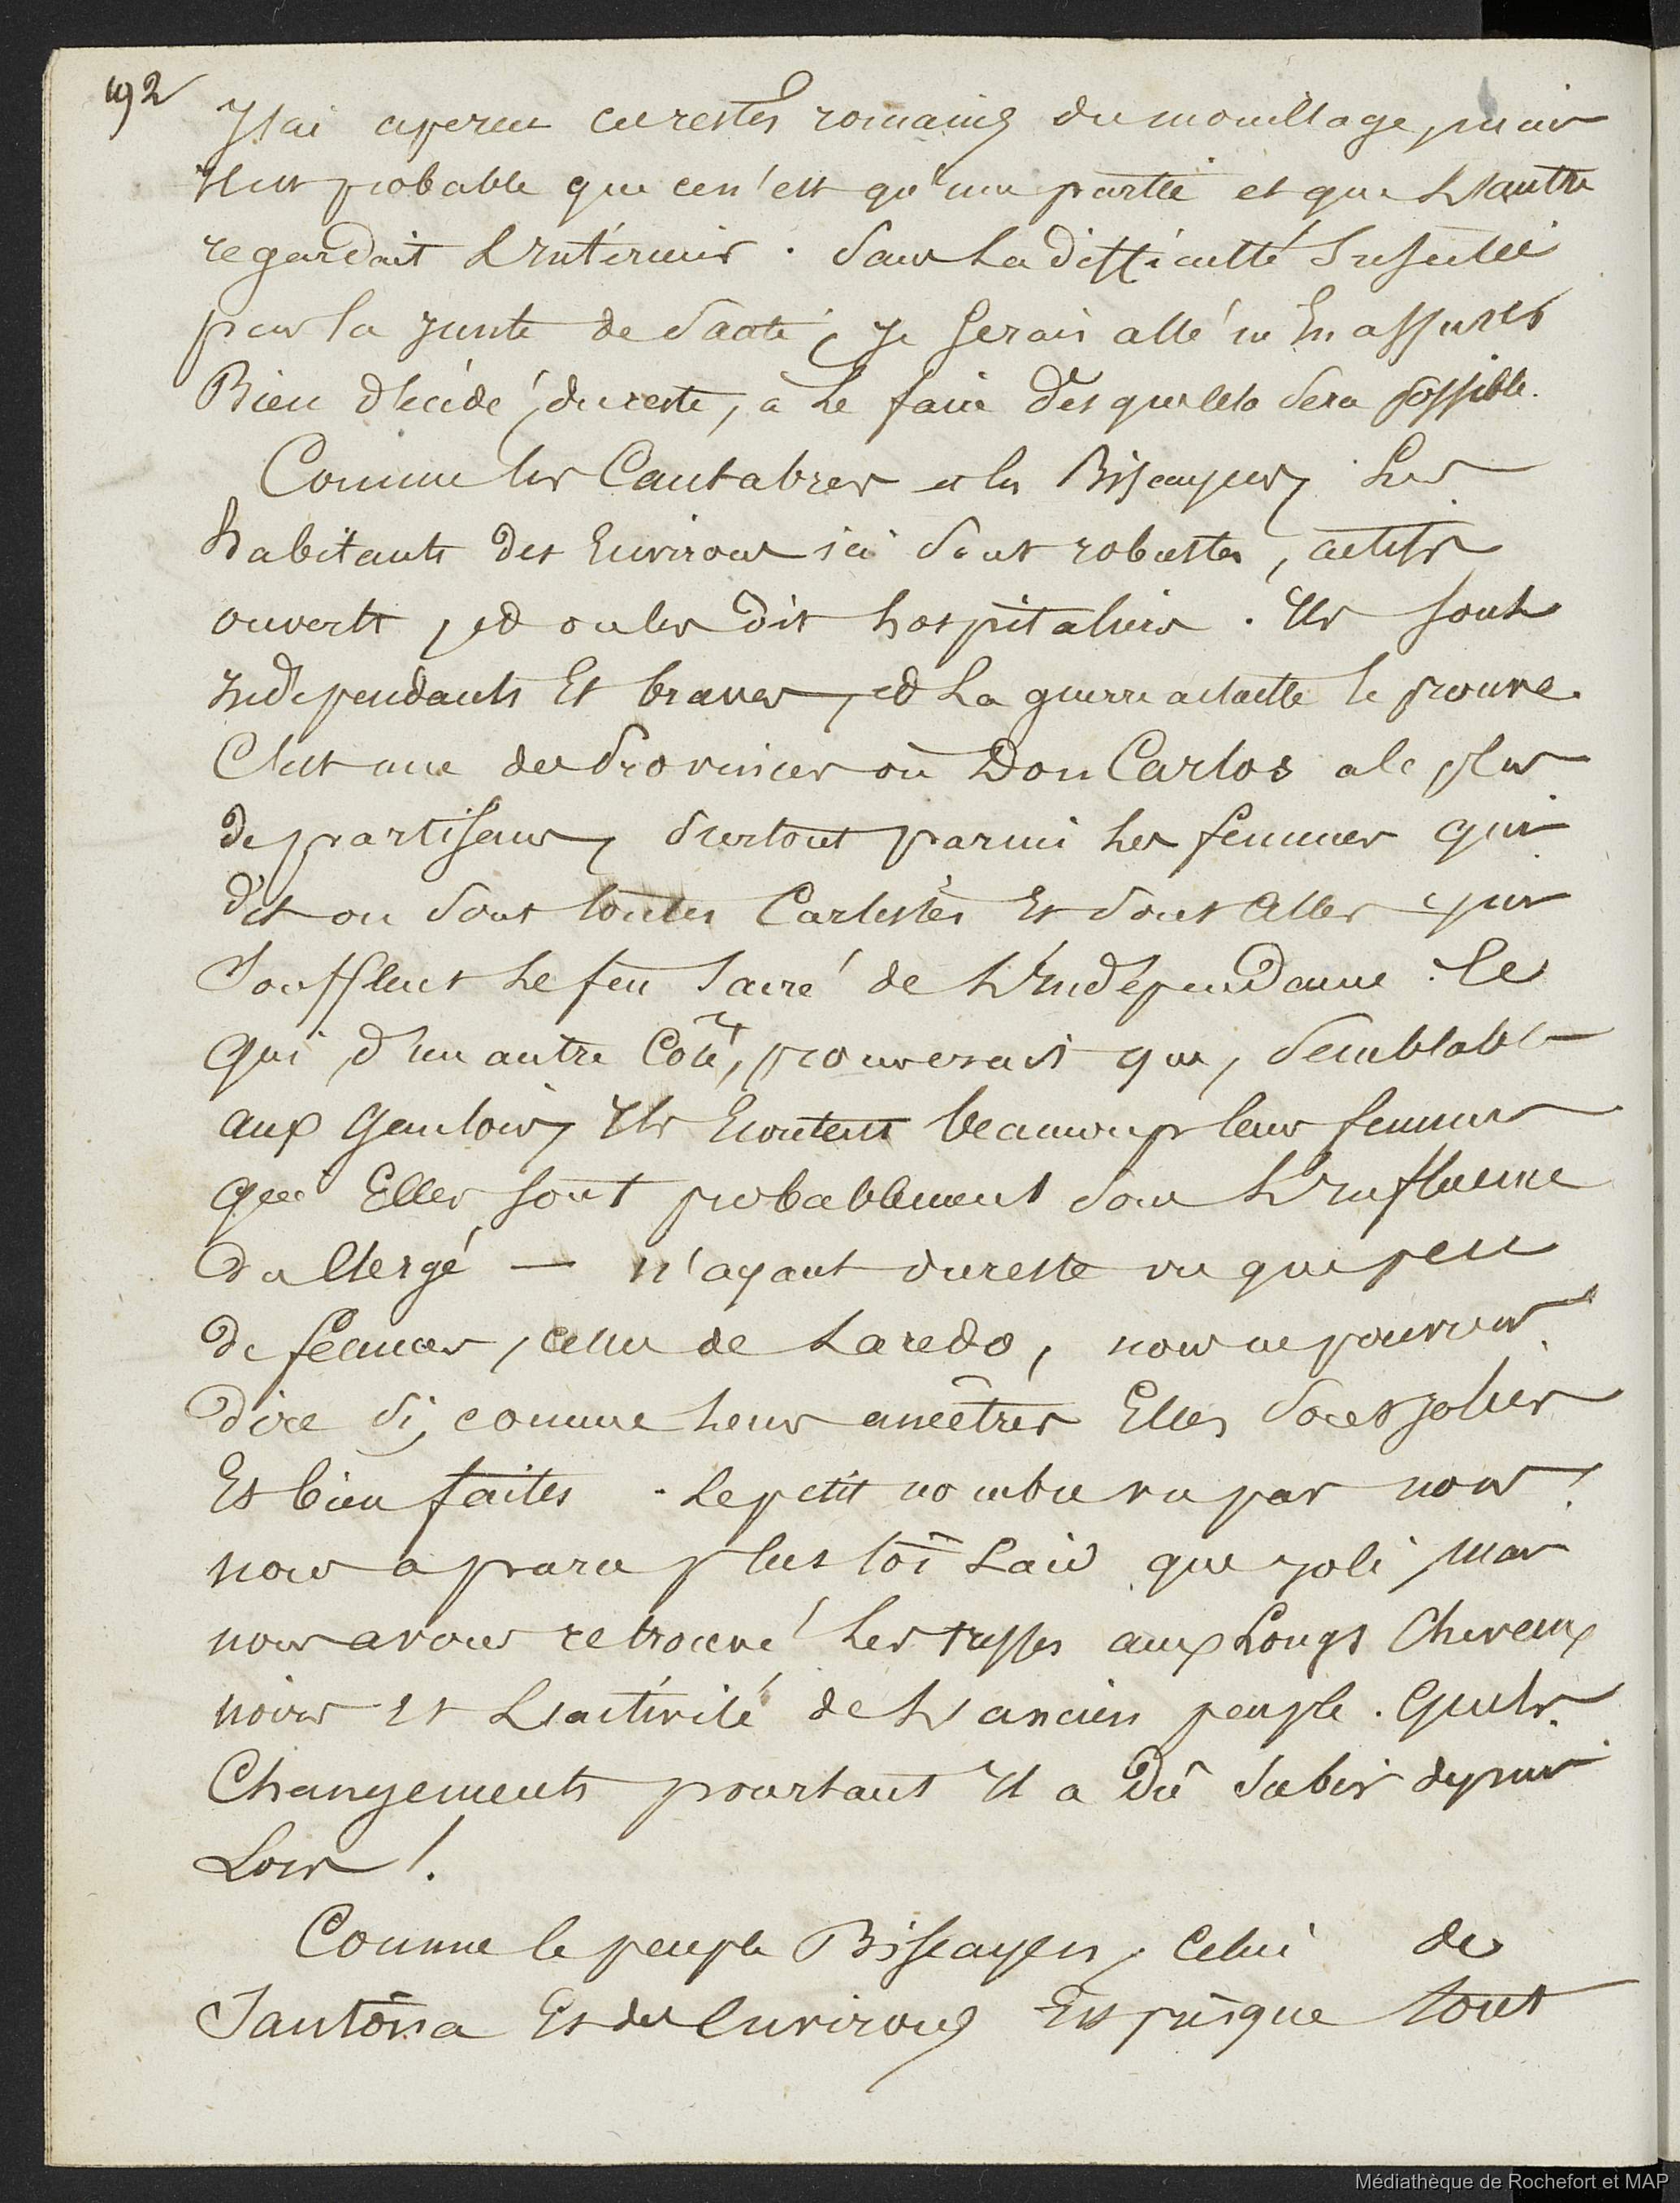 192
J'ai aperçu ces restes romains du mouillage, mais
il est probable que ce n'est qu'une partie et que l'autre
regardait l'intérieur. Sans la difficulté suscitée
par la junte de Santé, je serais allé m'en assurer
Bien décidé, du reste, à le faire dès que cela sera possible.
Comme les Cantabres et les Biscayens, les
habitants des environs ici sont robustes, actifs
ouverts, et on les dit hospitaliers. Ils sont
indépendants et braves, et la guerre actuelle le prouve.
C'est une des provinces où Don Carlos a le plus
de partisans, surtout parmi les femmes qui
dit on sont toutes Carlistes et sont elles qui
soufflent le feu sacré de l'indépendance. Ce
qui d'un autre côté, prouverait que, semblables
aux Gaulois, ils écoutent beaucoup leurs femmes
que elles sont probablement sous l'influence
du clergé — n'ayant du reste vu que peu
de femmes, celles de Laredo, nous ne pouvons
dire si, comme leurs ancêtres elles sont jolies
et bien faites. Le petit nombre vu par nous
nous a paru plus tôt laid que joli, mais
nous avons retrouvé les tresses aux longs cheveux
noirs et l'activité de l'ancien peuple. Quels
changements pourtant il a dû subir depuis
lors !
Comme le peuple Biscayen, celui de
Santoña et des environs est presque tout
Médiathèque de Rochefort et MAP